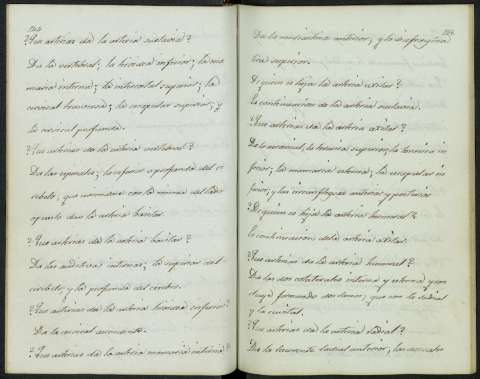 124
?Que arterias da la arteria suclavia?
Da la vertebral; la tiroidea inferior; la ma
maria interna; la intercostal superior; la
cervical transversa; la escapular superior; y
la cervical profunda.
?Que arterias da la arteria vertebral?
Da las espinales; la inferior o profunda del ce
rebelo, que uniendose con la misma del lado
opuesto dan la arteria basilar.
?Que arterias da la arteria basilar?
Da las auditiva internas; la superior del
cerebelo, y la profunda del cerebro.
?Que arterias da la arteria tiroidea inferior?
Da la cervical ascendente.
?Que arterias da la arteria mamaria interna?
Da la mediastina anterior; y la diafragma
tica superior.
?De quien es hija la arteria axilar?
Es continuacion de la arteria suclavia.
?Que arterias da la arteria axilar?
Da la acromial, la toracica superior; la toracica in
ferior; la mamaria esterna; la escapular in
ferior; y las circunflejas anterior y posterior
?De quien es hija la arteria humeral?
Es continuacion de la arteria axilar.
?Que arterias da la arteria humeral?
Da las dos colaterales interna y esterna y con
cluye formando dos ramos, que son la radial
y la cubital.
?Que arterias da la arteria radial?
Da la recurrente radial anterior; las